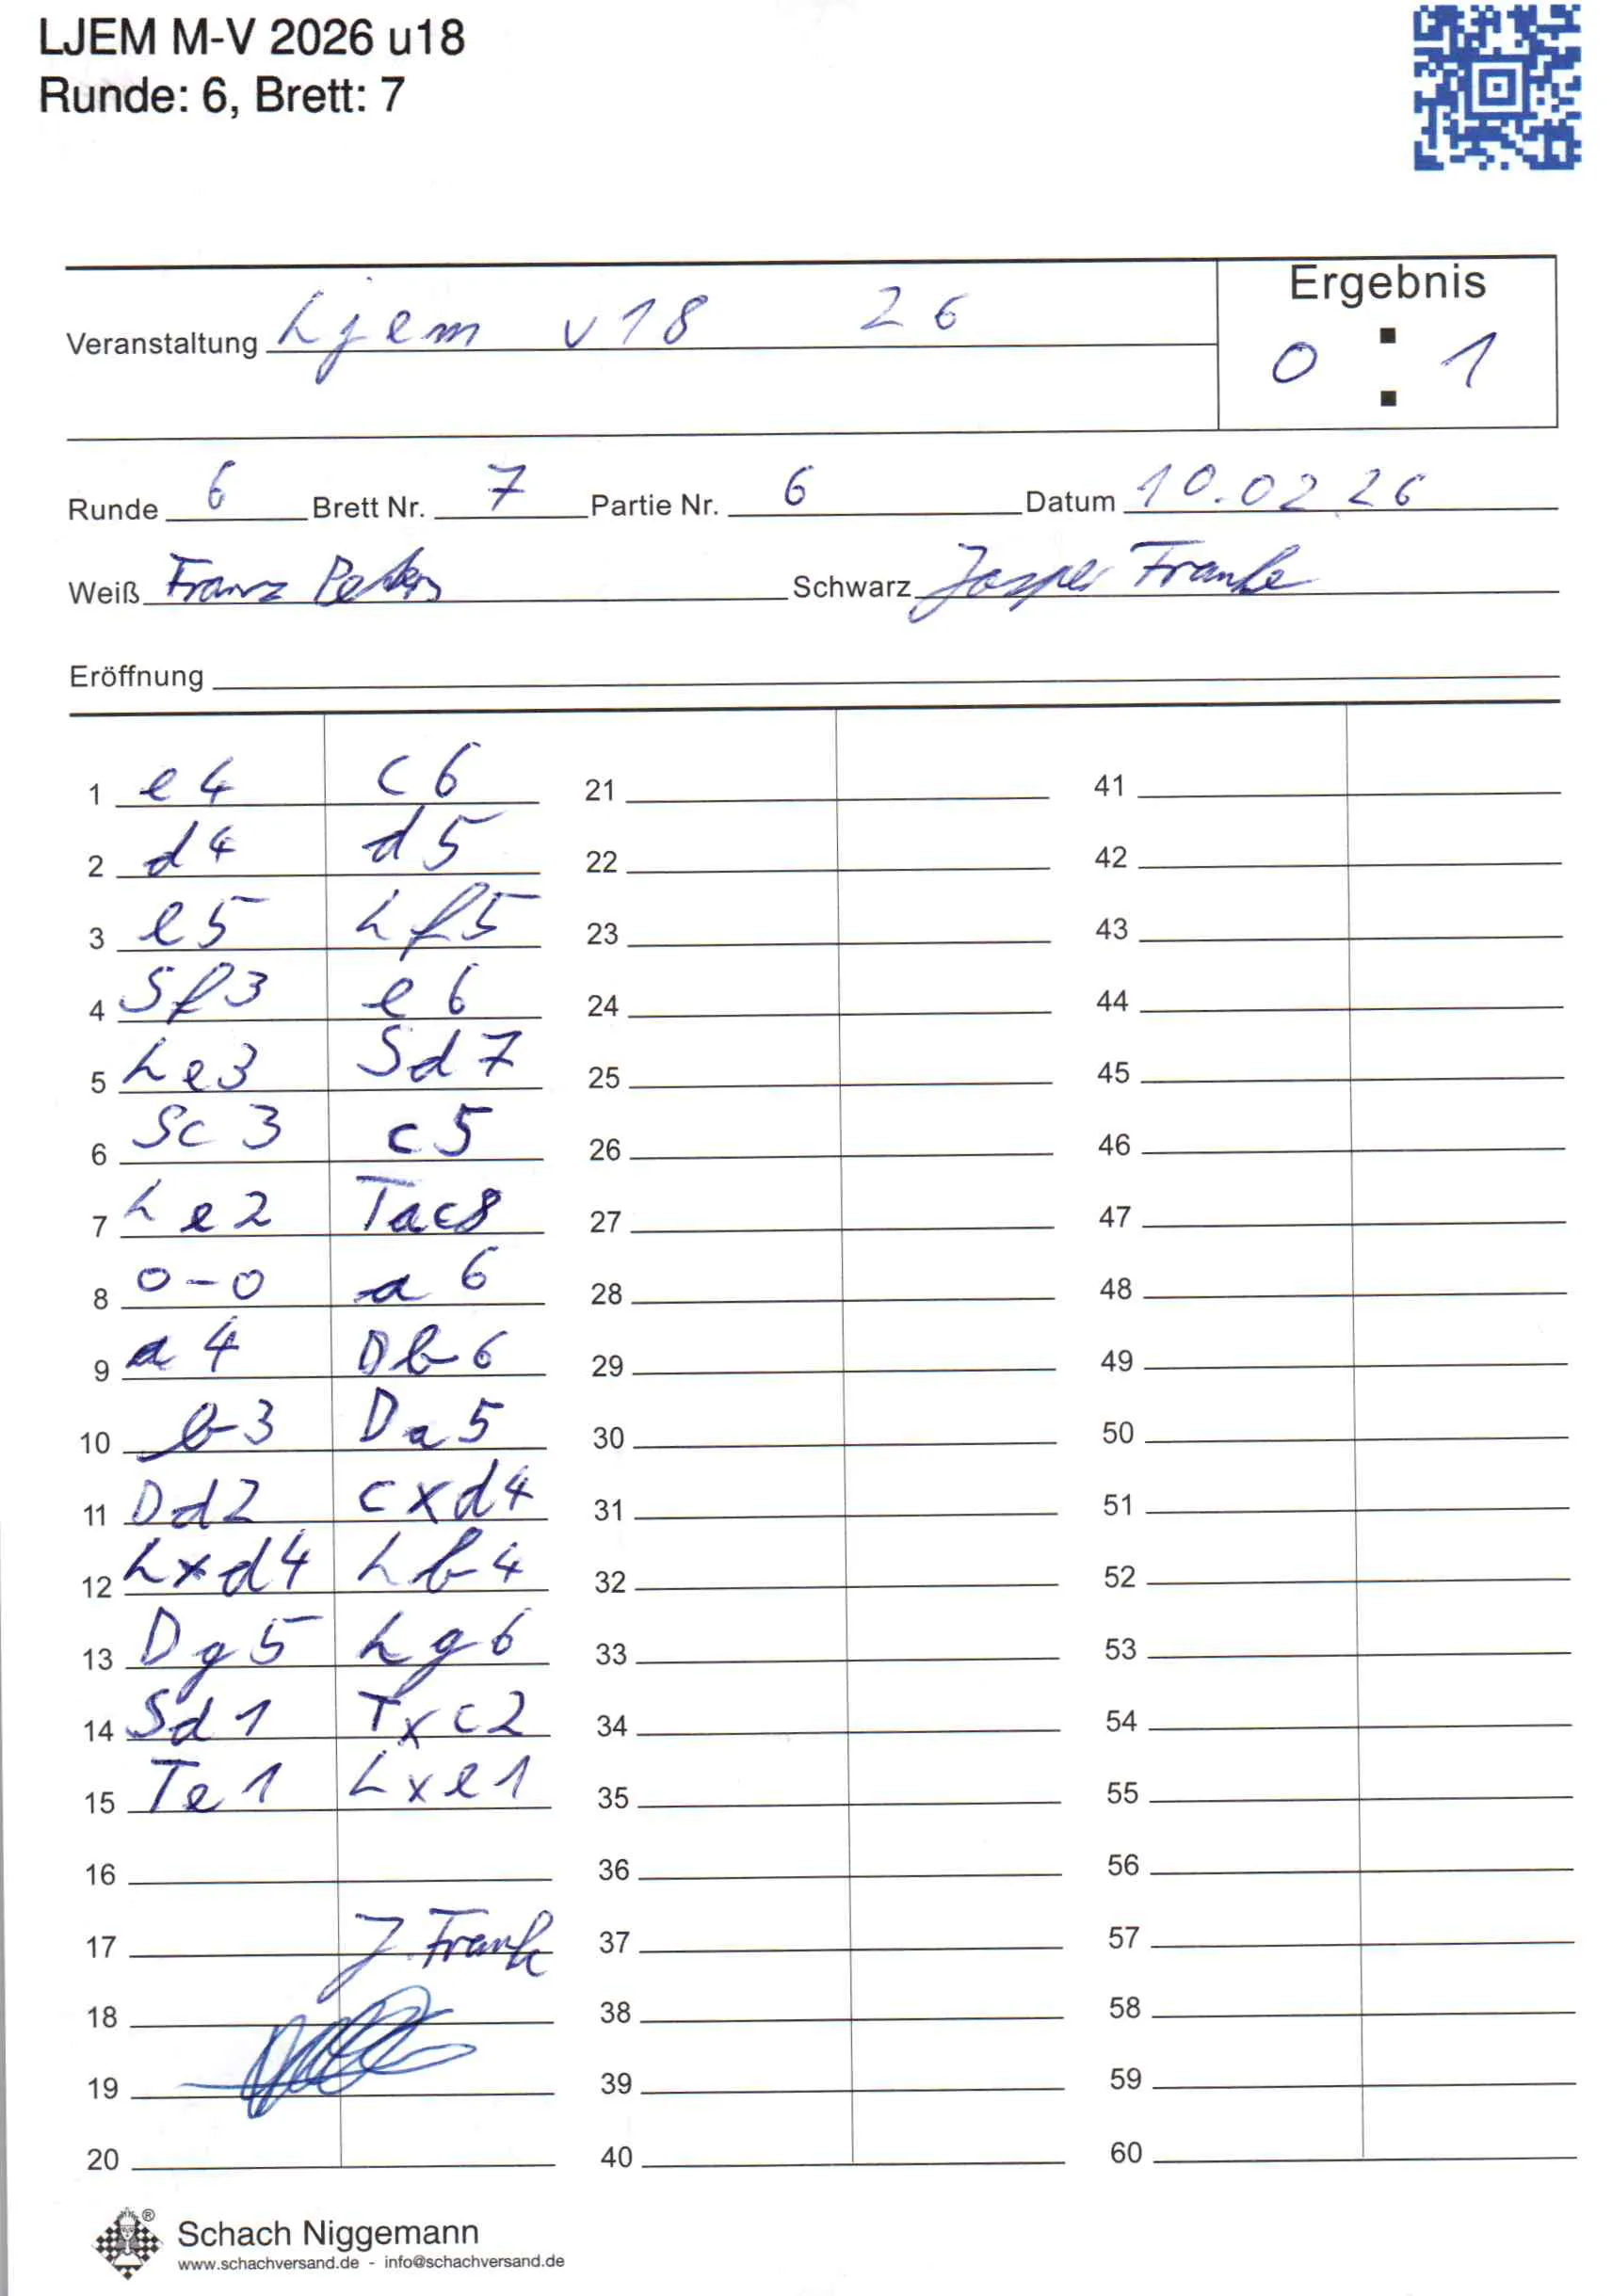 LJEM M-V 2026 u18
Runde: 6, Brett: 7
Ergebnis
Veranstaltung Ljem u18 26
0 : 1
Runde 6 Brett Nr. 7 Partie Nr. 6 Datum 10.02.26
Weiß Franz Peters Schwarz Jasper Franke
Eröffnung
1 e4 c6 21 41
2 d4 d5 22 42
3 e5 Lf5 23 43
4 Sf3 e6 24 44
5 Le3 Sd7 25 45
6 Sc3 c5 26 46
7 Le2 Tac8 27 47
8 0-0 a6 28 48
9 a4 Db6 29 49
10 b3 Da5 30 50
11 Dd2 cxd4 31 51
12 Lxd4 Lb4 32 52
13 Dg5 Lg6 33 53
14 Sd1 Txc2 34 54
15 Te1 Lxe1 35 55
16 36 56
17 J. Frank 37 57
18 38 58
19 39 59
20 40 60
®
Schach Niggemann
www.schachversand.de - info@schachversand.de